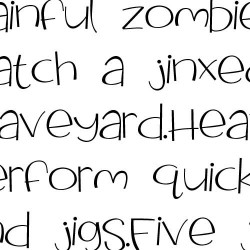 ainful zombie
atch a jinxed
aveyard.Hea
erform quick
nd jigs.Five